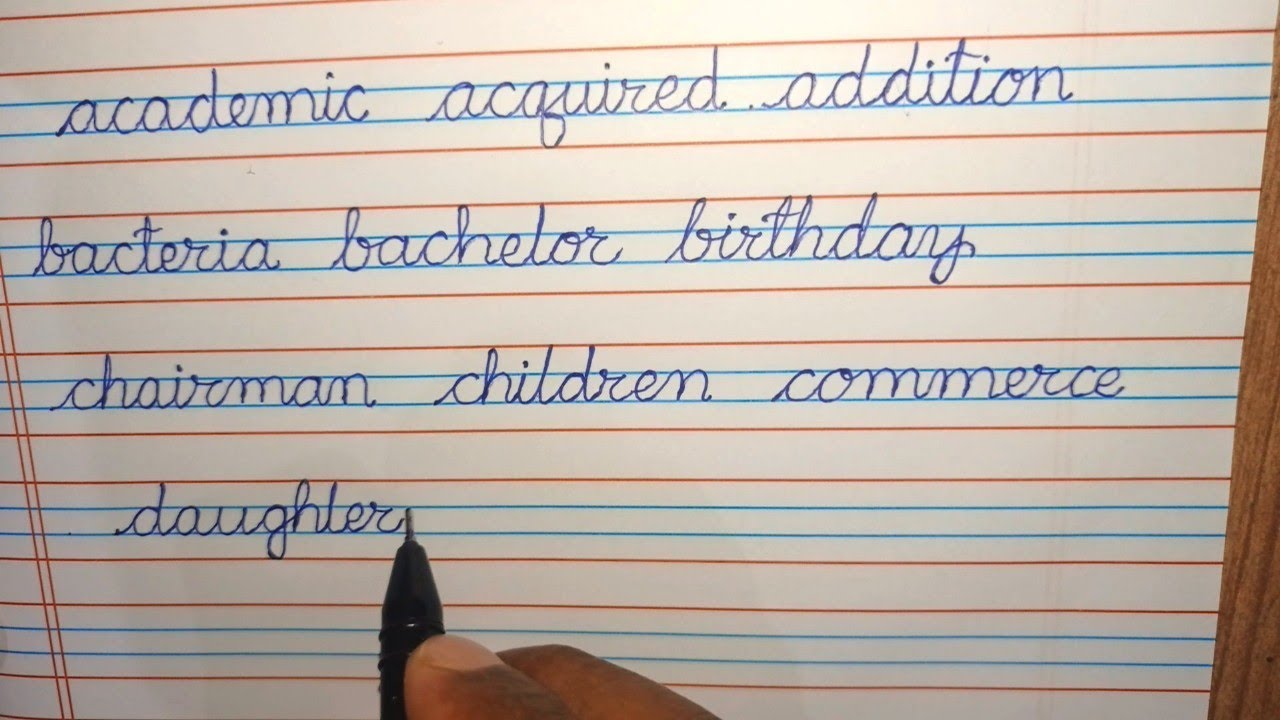 academic acquired addition
bacteria bachelor birthday
chairman children commerce
daughter